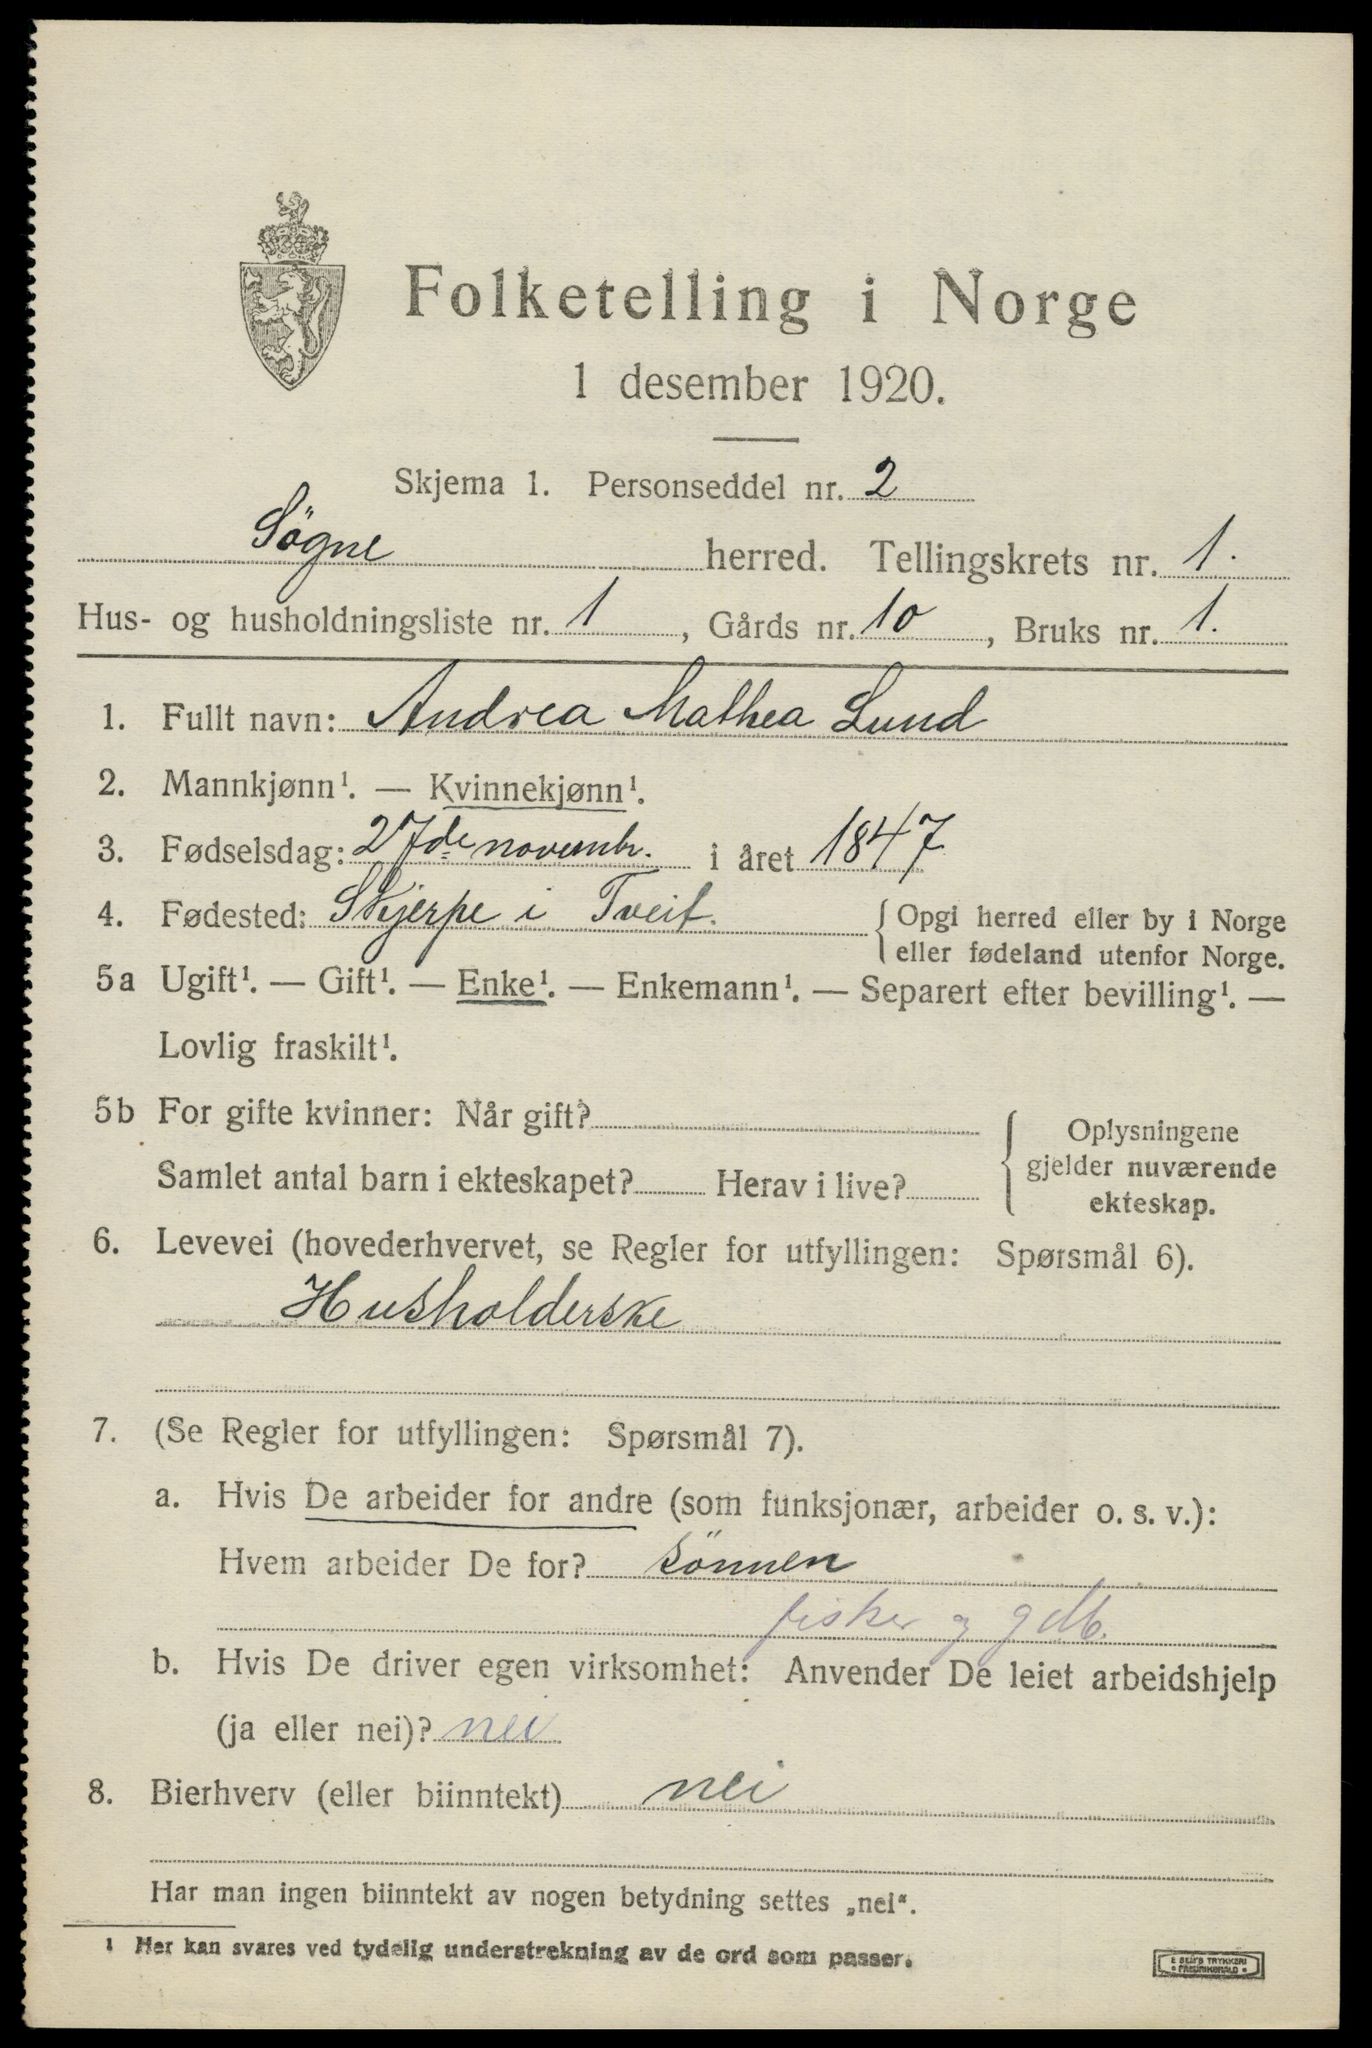 Folketelling i Norge
1 desember 1920.
Skjema 1. Personseddel nr. 2
Sögne herred. Tellingskrets nr. 1.
Hus- og husholdningsliste nr. 1, Gårds nr. 10, Bruks nr. 1.
1. Fullt navn: Andrea Mathea Lund
2. Mannkjønn¹. — Kvinnekjønn¹.
3. Fødselsdag: 27de novembr. i året 1847
4. Fødested: Skjerpe i Tveit. { Opgi herred eller by i Norge
eller fødeland utenfor Norge.
5a Ugift¹. — Gift¹. — Enke¹. — Enkemann¹. — Separert efter bevilling¹. —
Lovlig fraskilt¹.
5b For gifte kvinner: Når gift?
Samlet antal barn i ekteskapet? Herav i live?
{ Oplysningene
gjelder nuværende
ekteskap.
6. Levevei (hovederhvervet, se Regler for utfyllingen: Spørsmål 6).
Husholderske
7. (Se Regler for utfyllingen: Spørsmål 7).
a. Hvis De arbeider for andre (som funksjonær, arbeider o. s. v.):
Hvem arbeider De for? sönnen
fisker og gdb.
b. Hvis De driver egen virksomhet: Anvender De leiet arbeidshjelp
(ja eller nei)? nei
8. Bierhverv (eller biinntekt) nei
Har man ingen biinntekt av nogen betydning settes „nei“.
¹ Her kan svares ved tydelig understrekning av de ord som passer.
E SEM'S TRYKKERI
• FREDRIKSHALD •